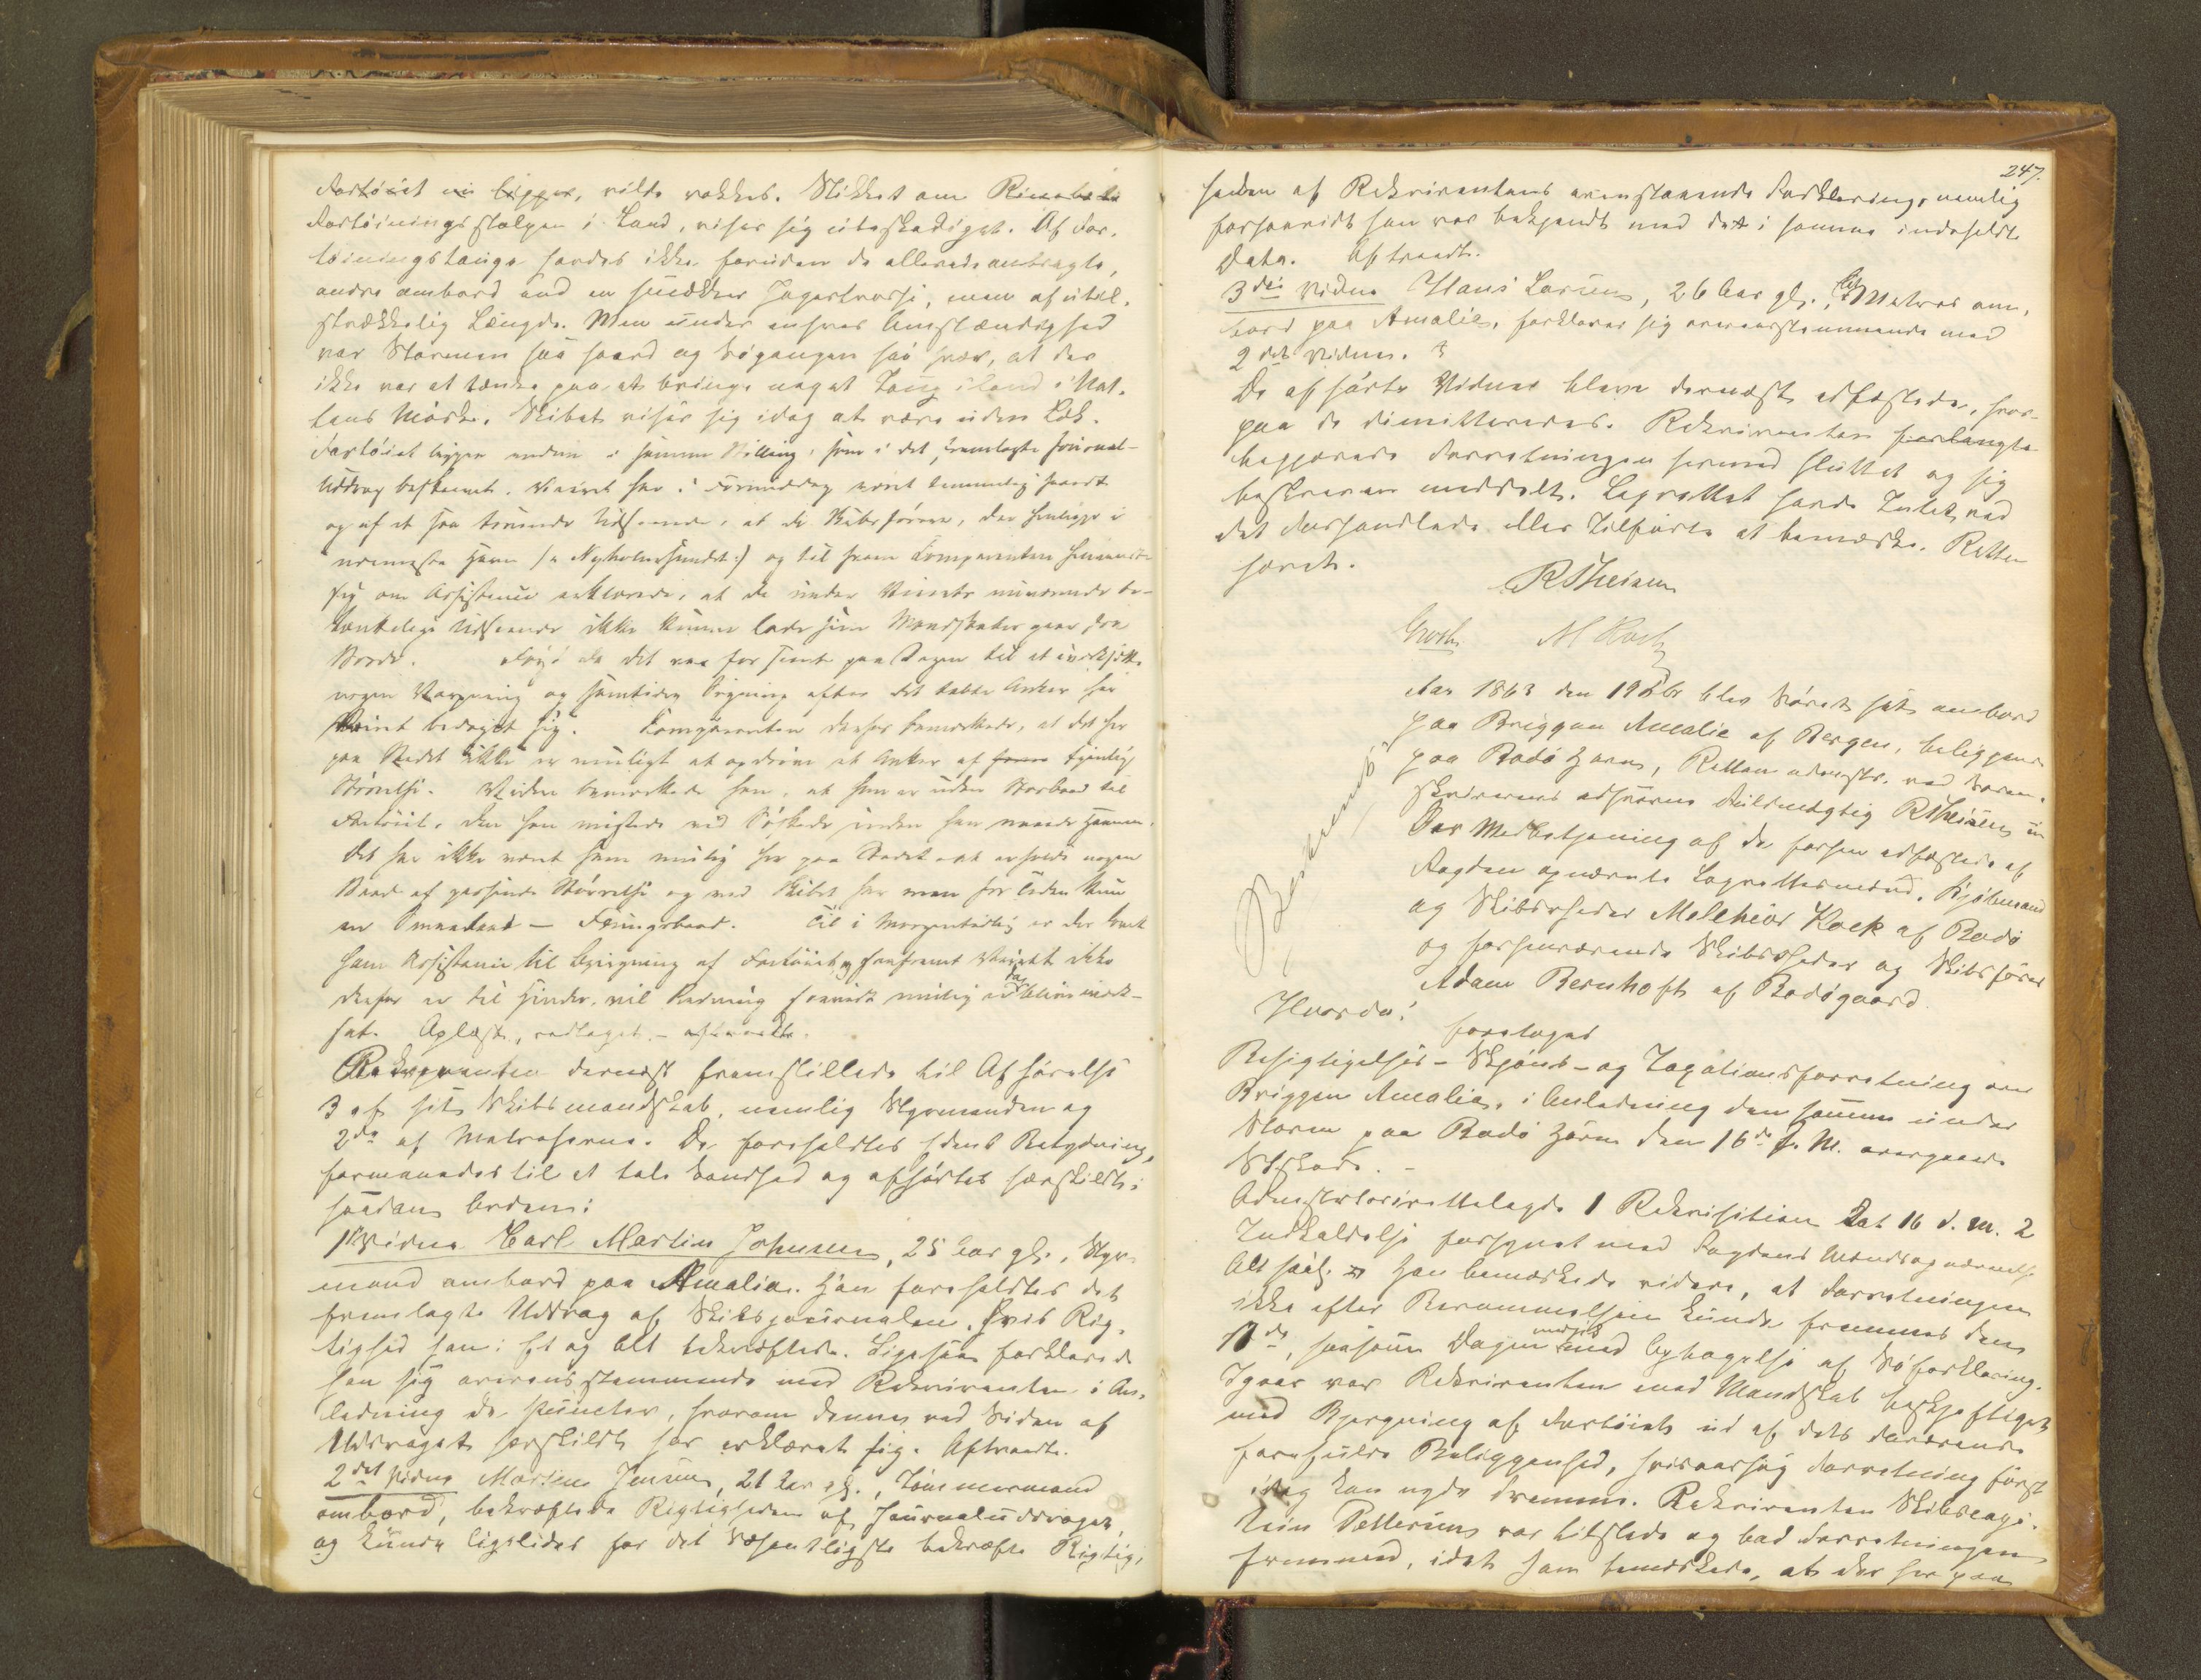 Fartöiet nu ligger, vilde rækkes. Stikket om
Fortöiningsstolpen i Land, viser sig ubeskadiget. Af For-
töiningstauge havdes ikke foruden de allerede anbragte,
andre ombord end en Jagertrosse, men af util-
strækkelig Længde. Men under enhver Omstændighed
var Stormen saa haard og Søgangen saa svær, at der
ikke var at tænke paa at bringe noget Toug iland i Nat-
tens Mörke. Skibet viser sig idag at være uden Læk.
Fartöiet ligger endnu i samme Stilling, som i det fremlagte Journal-
Uddrag beskrevet. Veiret har i Formiddag været temmelig haardt
og af et saa truende Udseende, at de Skibsförere, der henligge i
nærmeste Havn (: Nyholmssundet :) og til hvem Comparenten henvendte
sig om Assistence erklærede, at de under Veirets nuværende be-
tænkelige Udseende ikke kunne lade sine Mandskaber gaae fra
Borde. da det var for seent paa Dagen til at iværksætte
nogen Varpning og samtidig Sögning efter det tabte Anker har
Veiret bedaget sig. Comparenten derhos bemærkede, at det her
paa Stedet ikke er muligt at opdrive et Anker af tjenlig
Störrelse. Videre bemærkede han, at han er uden Storbaad til
Fartöiet, den han mistede ved Söskade inden han naaede Havnen.
Det har ikke været ham mulig her paa Stedet at erholde nogen
Baad af passende Störrelse og ved Skibet har man for Tiden kun
en Smaabaad – Til i Morgentidlig er der lovet
ham Assistance til Bjergning af Fartöiet og saafremt Veiret ikke
derfor er til Hinder, vil Redning saavidt mulig da blive iværk-
sat. Oplæst, vedtaget. – aftraadte.
Rekvirenten dernæst fremstillede til Afhörelse
3 af sit Skibsmandskab, nemlig Styrmanden og
2de af Matroserne. De foreholdtes Edens Betydning,
formanedes til at tale Sandhed og afhörtes særskildt i
saadan Orden:
1ste Vidne Carl Martin Johnsen, 25 Aar gl., Styr-
mand ombord paa Amalia. Han foreholdtes det
fremlagte Uddrag af Skibsjournalen, hvis Rig-
tighed han i Et og Alt bekræftede. Ligesaa forklarede
han sig overensstemmende med Rekvirenten i An-
ledning de Puncter, hvorom denne ved Siden af
Uddraget særskildt har erklæret sig. Aftraadte.
2det Vidne Martin Jensen, 21 Aar gl., Tömmermand
ombord, bekræftede Rigtigheden af Journaluddraget,
og kunde ligeledes for det Væsentligste bekræfte Rigtig-
247.
heden af Rekvirentens ovenstaaende Forklaring, nemlig
forsaavidt han var bekjendt med det i samme indeholdte
Data. Aftraadte.
3die Vidne Hans Larsen, 26 Aar gl., Matros om-
bord paa Amalia, forklarer sig overensstemmende med
2det Vidne.
De afhörte Vidner bleve dernæst edfæstede, hvor-
paa de dimitteredes. Rekvirenten forlangte
begjærede Forretningen hermed sluttet og sig
beskreven meddelt. Lagrettet havde Intet ved
det Forhandlede eller Tilförte at bemærke. Retten
hævet.
RTheisen
M Koch
Aar 1863 den 19 blev Söret sat ombord
paa Briggen Amalie af Bergen, beliggende
paa Bodö Havn, Retten administr. ved Soren-
skriverens edsvorne Fuldmægtig RTheisen
Medbetjening af de forhen edfæstede af
Fogden opnævnte Lagrettesmænd, Kjöbmand
og Skibsrheder Melchior Kock af Bodö
og forhenværende Skibsrheder og Skibsförer
Adam Bernhoft af Bodögaard.
Beskrevet
Hvorda:
foretoges
Besigtigelses- Skjöns- og Taxationsforretning over
Briggen Amalia, i Anledning den samme under
Storm paa Bodö Havn den 16de d. M. overgaaede
Söskade. –
Administrator irettelagde 1 Rekvisition Dat 16 d. M. 2
Indkaldelse forsynet med Fogdens Mændsopnævnelse
Alt saal. Han bemærkede videre, at Forretningen
ikke efter Berammelsen kunde fremmes den
17de, saasom Dagen medgik med Optagelse af Söforklaring.
Igaar var Rekvirenten med Mandskab beskjæftiget
med Bjergning af Fartöiet ud af dets daværende
farefulde Beliggenhed, hvisaarsag Forretning först
idag kan nyde Fremme. Rekvirenten Skibscapi-
tain Pettersen var tilstede og bad Forretningen
fremmed, idet han bemærkede, at der her paa